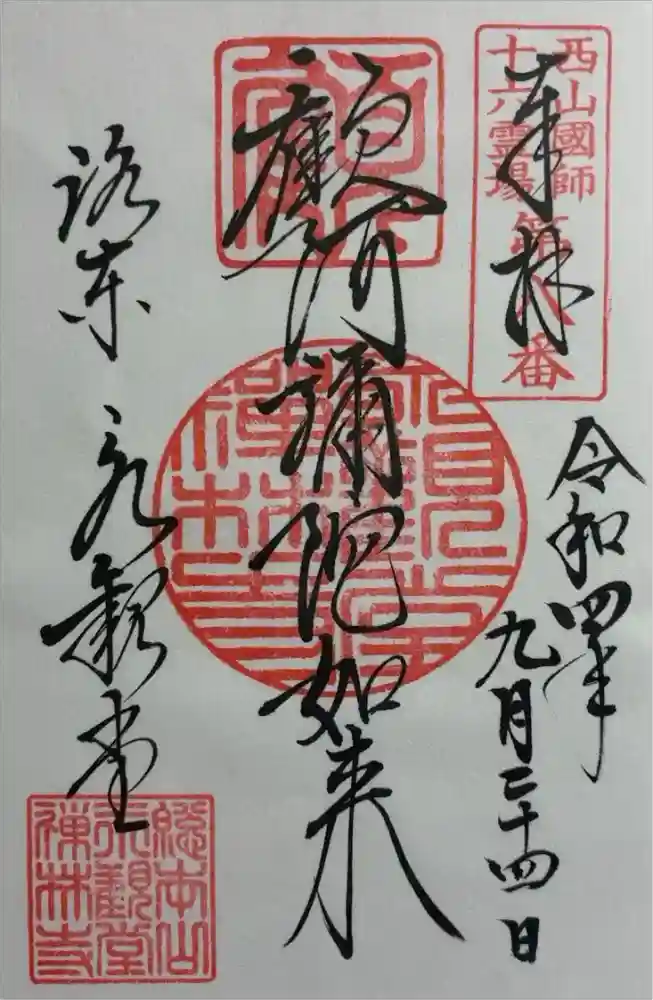 西山國師
十六霊場
第八番
奉拝
令和四年
九月二十四日
顧阿彌陀如来
洛東 永観堂
總本山
永觀堂
禅林寺